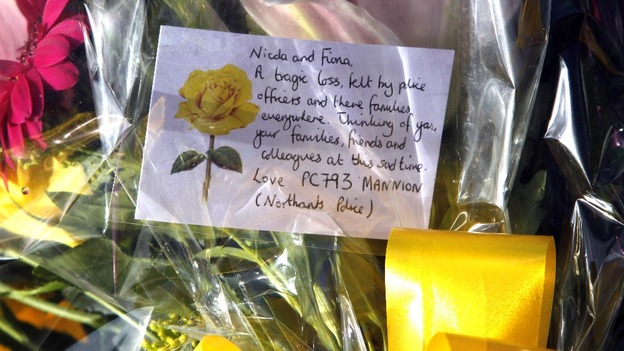 Nicola and Fiona,
A tragic loss, felt by police
officers and there families
everywhere. Thinking of you,
your families, friends and
colleagues at this sad time.
Love PC793 MANNION
(Northants Police)